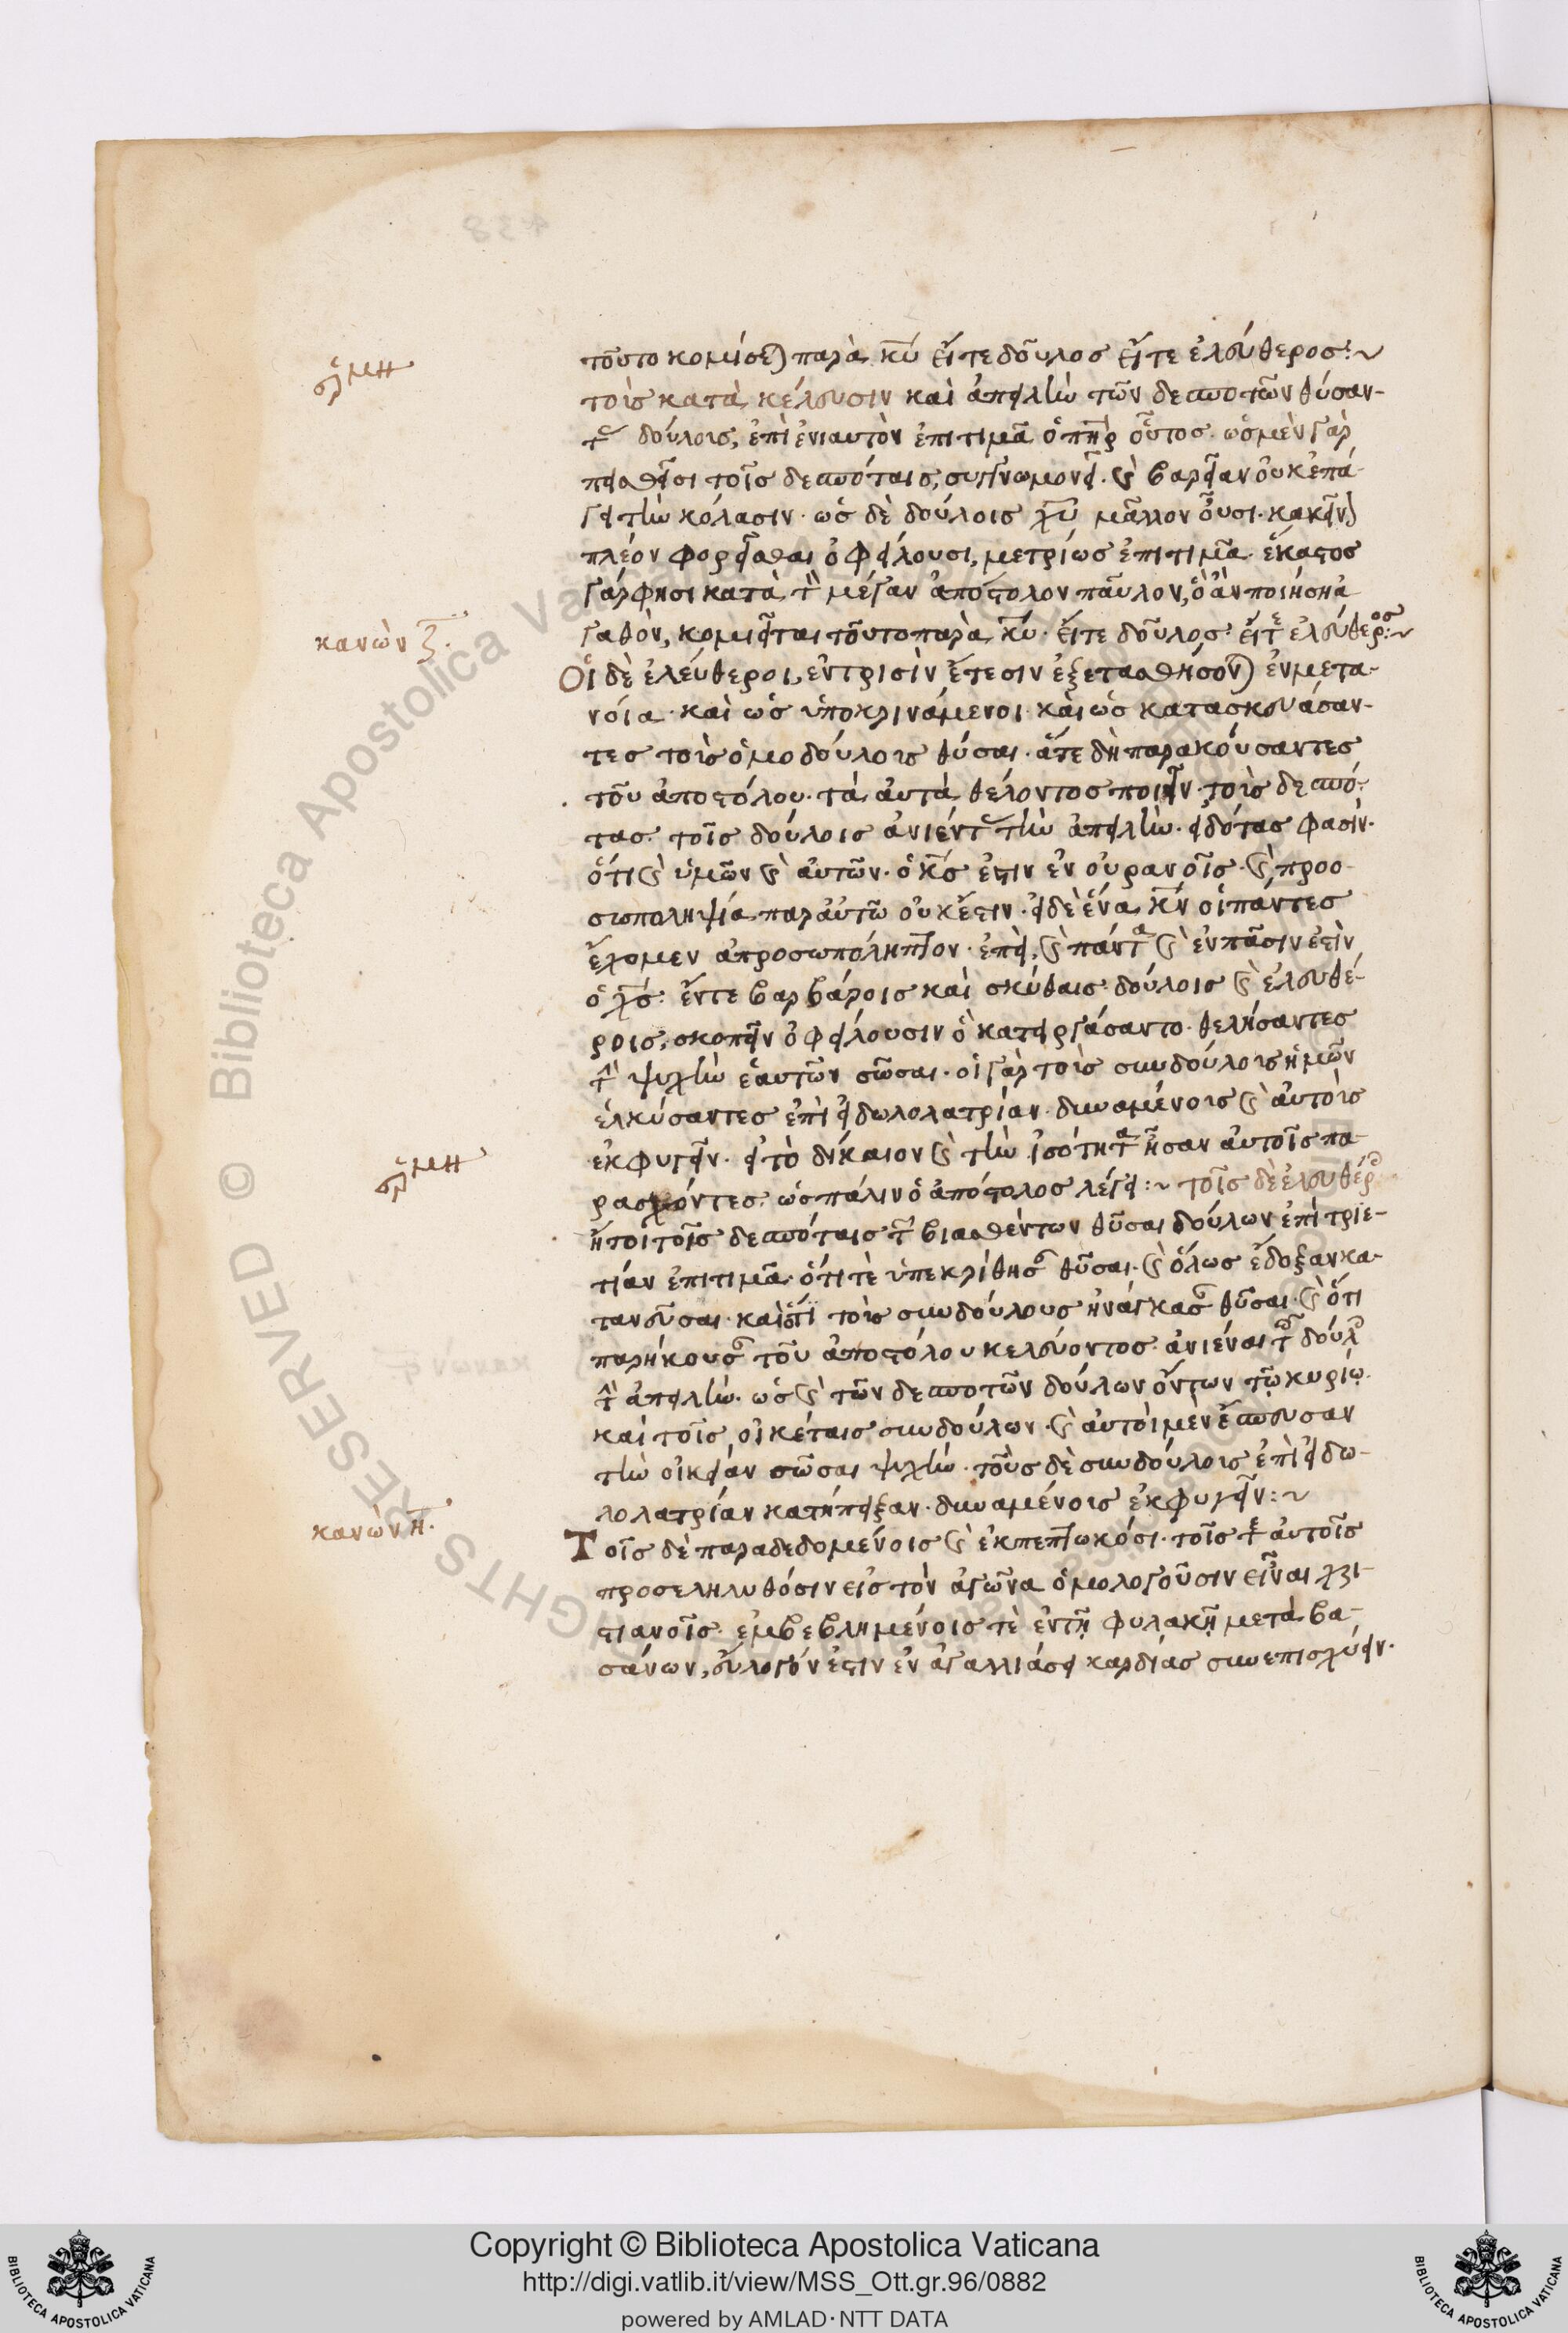 σχ μη
τοῦτο κομίσεται παρὰ κυ εἴτε δοῦλος εἴτε ἐλεύθερος:~
τοῖς κατὰ κέλευσιν καὶ ἀπειλὴν τῶν δεσποτῶν θύσαν-
τ δούλοις, ἐπὶ ἐνιαυτὸν ἐπιτιμᾶ ὁ πηρ οὗτος. ὡς μὲν γὰρ
πεισθεῖσι τοῖς δεσπόταις, συγγνωμονεῖ. καὶ βαρεῖαν οὐκ ἐπά-
γει τὴν κόλασιν. ὡς δὲ δούλοις χυ μᾶλλον οὖσι. κακεῖν
πλέον φορεῖσθαι ὀφείλουσι, μετρίως ἐπιτιμᾶ. ἕκαστος
γάρ φησι κατὰ τὸν μέγαν ἀπόστολον παῦλον, ὃ ἂν ποιήση ἀ
κανὼν ζ.
γαθὸν, κομιεῖται τοῦτο παρὰ κυ. εἴτε δοῦλος εἴτε ἐλεύθερος:~
Οἱ δὲ ἐλεύθεροι, ἐν τρισὶν ἔτεσιν ἐξετασθήσονται ἐν μετα-
νοία. καὶ ὡς ὑποκρινάμενοι. καὶ ὡς κατασκευάσαν-
τες τοὺς ὁμοδούλους θύσαι. ἅτε δὴ παρακούσαντες
τοῦ ἀποστόλου. τὰ αὐτὰ θέλοντος ποιεῖν τοὺς δεσπό-
τας τοῖς δούλοις ἀνιέντας τὴν ἀπειλήν. εἰδότας φασίν.
ὅτι καὶ ὑμῶν καὶ αὐτῶν. ὁ κς ἐστιν ἐν οὐρανοῖς. καὶ προσ-
σωποληψία παρ αὐτῶ οὐκ ἔστιν. εἰ δὲ ἕνα κν οἱ πάντες
ἔχομεν ἀπροσωπόληπτον. ἐπεὶ, καὶ πάντα καὶ ἐν πᾶσιν ἐστὶν
ὁ χς. ἔν τε βαρβάροις καὶ σκύθαις δούλοις καὶ ἐλευθέ-
ροις, σκοπεῖν ὀφείλουσιν ὃ κατειργάσαντο. θελήσαντες
τὴν ψυχὴν ἑαυτῶν σῶσαι. οἱ γὰρ τοὺς συνδούλους ἡμῶν
ἑλκύσαντες ἐπὶ εἰδωλολατρίαν. δυναμένους καὶ αὐτοὺς
ἐκφυγεῖν. εἰ τὸ δίκαιον καὶ τὴν ἰσότητα ἦσαν αὐτοῖς πα-
σχ μη
ρασχόντες. ὡς πάλιν ὁ ἀπόστολος λέγει:~ τοῖς δὲ ἐλευθέρ
ἤτοι τοῖς δεσπόταις τῶν βιασθέντων θῦσαι δούλων ἐπὶ τριε-
τίαν ἐπιτιμᾶ. ὅτι τὲ ὑπεκρίθησαν θῦσαι. καὶ ὅλως ἔδοξαν κα-
τανεῦσαι. καὶ ὅτι τοὺς συνδούλους ἠνάγκασαν θῦσαι. καὶ ὅτι
παρήκουσαν τοῦ ἀποστόλου κελεύοντος ἀνιέναι τοῖς δούλ
τὴν ἀπειλήν. ὡς καὶ τῶν δεσποτῶν δούλων ὄντων τῷ κυρίῳ.
καὶ τοῖς οἰκέταις συνδούλων. καὶ αὐτοὶ μὲν ἔσπευσαν
τὴν οἰκείαν σῶσαι ψυχήν. τοὺς δὲ συνδούλους ἐπὶ εἰδω-
λολατρίαν κατήπειξαν. δυναμένους ἐκφυγεῖν:~
κανὼν η.
Τοῖς δὲ παραδεδομένοις καὶ ἐκπεπτωκόσι. τοῖς τὲ αὐτοῖς
προσεληλυθόσιν εἰς τὸν ἀγῶνα ὁμολογοῦσιν εἶναι χρι-
στιανοῖς. ἐμβεβλημένοις τὲ ἐν τῇ φυλακῇ μετὰ βα-
σάνων, εὔλογόν ἐστιν ἐν ἀγαλλιάσει καρδίας συνεπισχύειν.
© Biblioteca Apostolica Vaticana
RIGHTS RESERVED
Copyright © Biblioteca Apostolica Vaticana
http://digi.vatlib.it/view/MSS_Ott.gr.96/0882
powered by AMLAD · NTT DATA
BIBLIOTECA APOSTOLICA VATICANA
BIBLIOTECA APOSTOLICA VATICANA